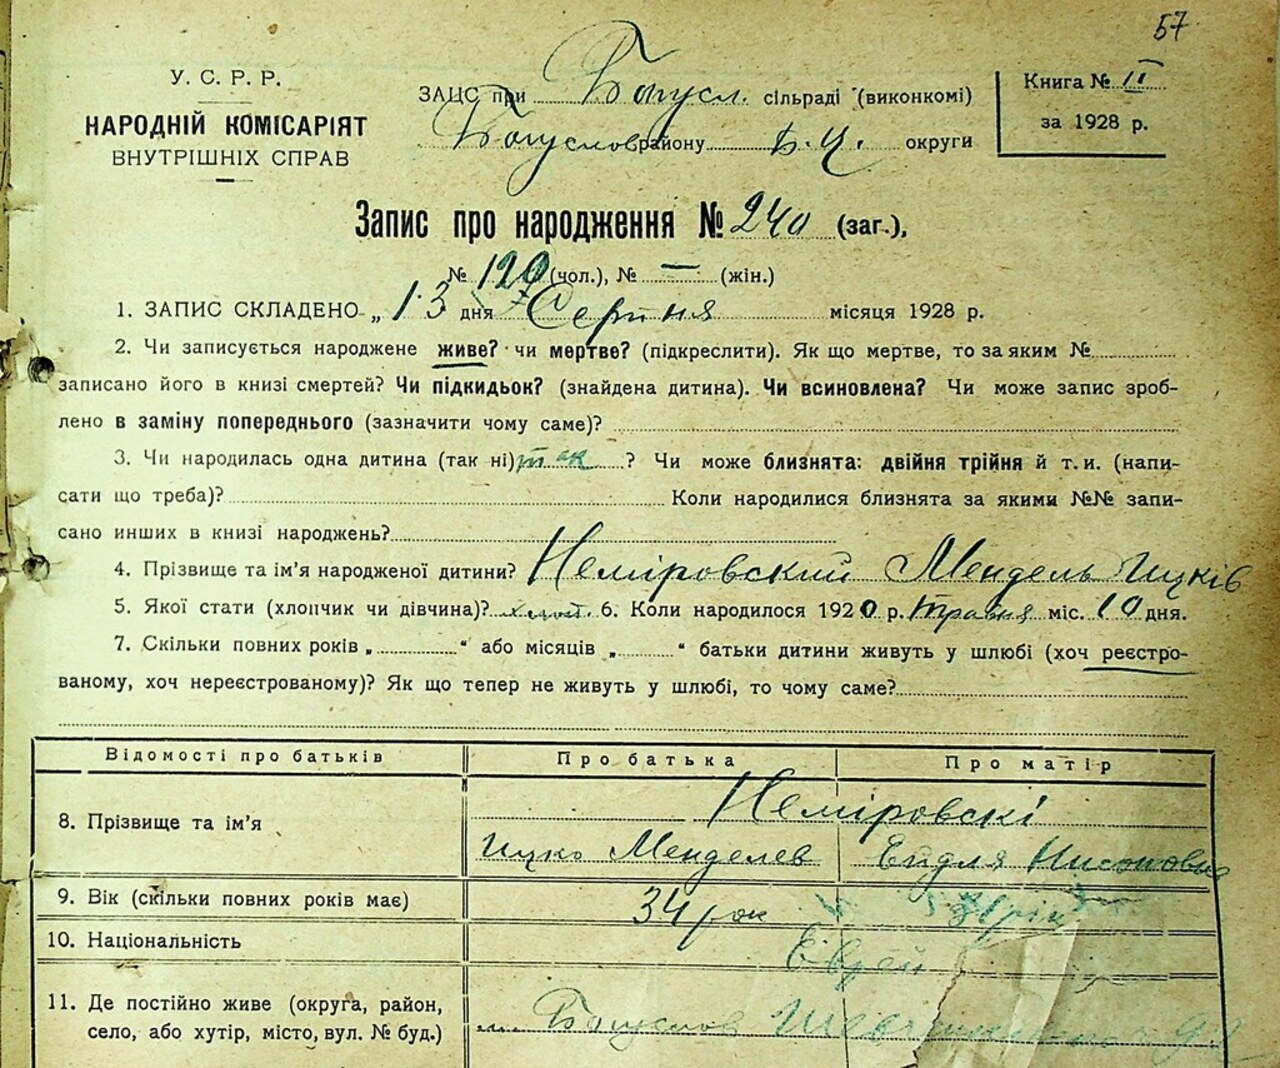 57
У. С. Р. Р.
НАРОДНІЙ КОМІСАРІЯТ
ВНУТРІШНІХ СПРАВ
ЗАЦС при Богусл. сільраді (виконкомі)
Богуслов району Б.Ц. округи
Книга № II
за 1928 р.
Запис про народження № 240 (заг.),
№ 120 (чол.), № — (жін.)
1. ЗАПИС СКЛАДЕНО „ 13 дня Серпня місяця 1928 р.
2. Чи записується народжене живе? чи мертве? (підкреслити). Як що мертве, то за яким №
записано його в книзі смертей? Чи підкидьок? (знайдена дитина). Чи всиновлена? Чи може запис зроб-
лено в заміну попереднього (зазначити чому саме)?
3. Чи народилась одна дитина (так ні) так ? Чи може близнята: двійня трійня й т. и. (напи-
сати що треба)? Коли народилися близнята за якими №№ запи-
сано инших в книзі народжень?
4. Прізвище та ім'я народженої дитини? Неміровский Мендель Ицків
5. Якої стати (хлопчик чи дівчина)? хлоп. 6. Коли народилося 1920 р. травня міс. 10 дня.
7. Скільки повних років „ “ або місяців „ “ батьки дитини живуть у шлюбі (хоч реєстро-
ваному, хоч нереєстрованому)? Як що тепер не живуть у шлюбі, то чому саме?
Відомості про батьків Про батька Про матір
8. Прізвище та ім'я Неміровскі
Ицко Менделев Ейдля Нисоновна
9. Вік (скільки повних років має) 34 рок 31 рік
10. Національність Єврей
11. Де постійно живе (округа, район,
село, або хутір, місто, вул. № буд.) м. Богуслов